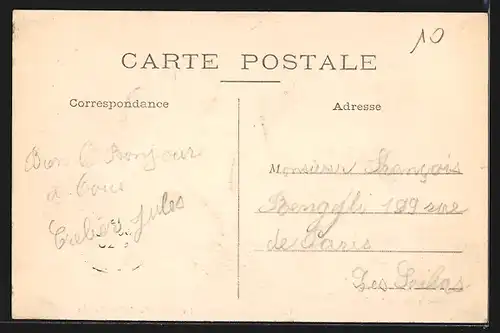 10
CARTE POSTALE
Correspondance
Adresse
Bon Bonjour
à tous
Jules
Monsieur François
199 rue
de Paris
Les Lilas